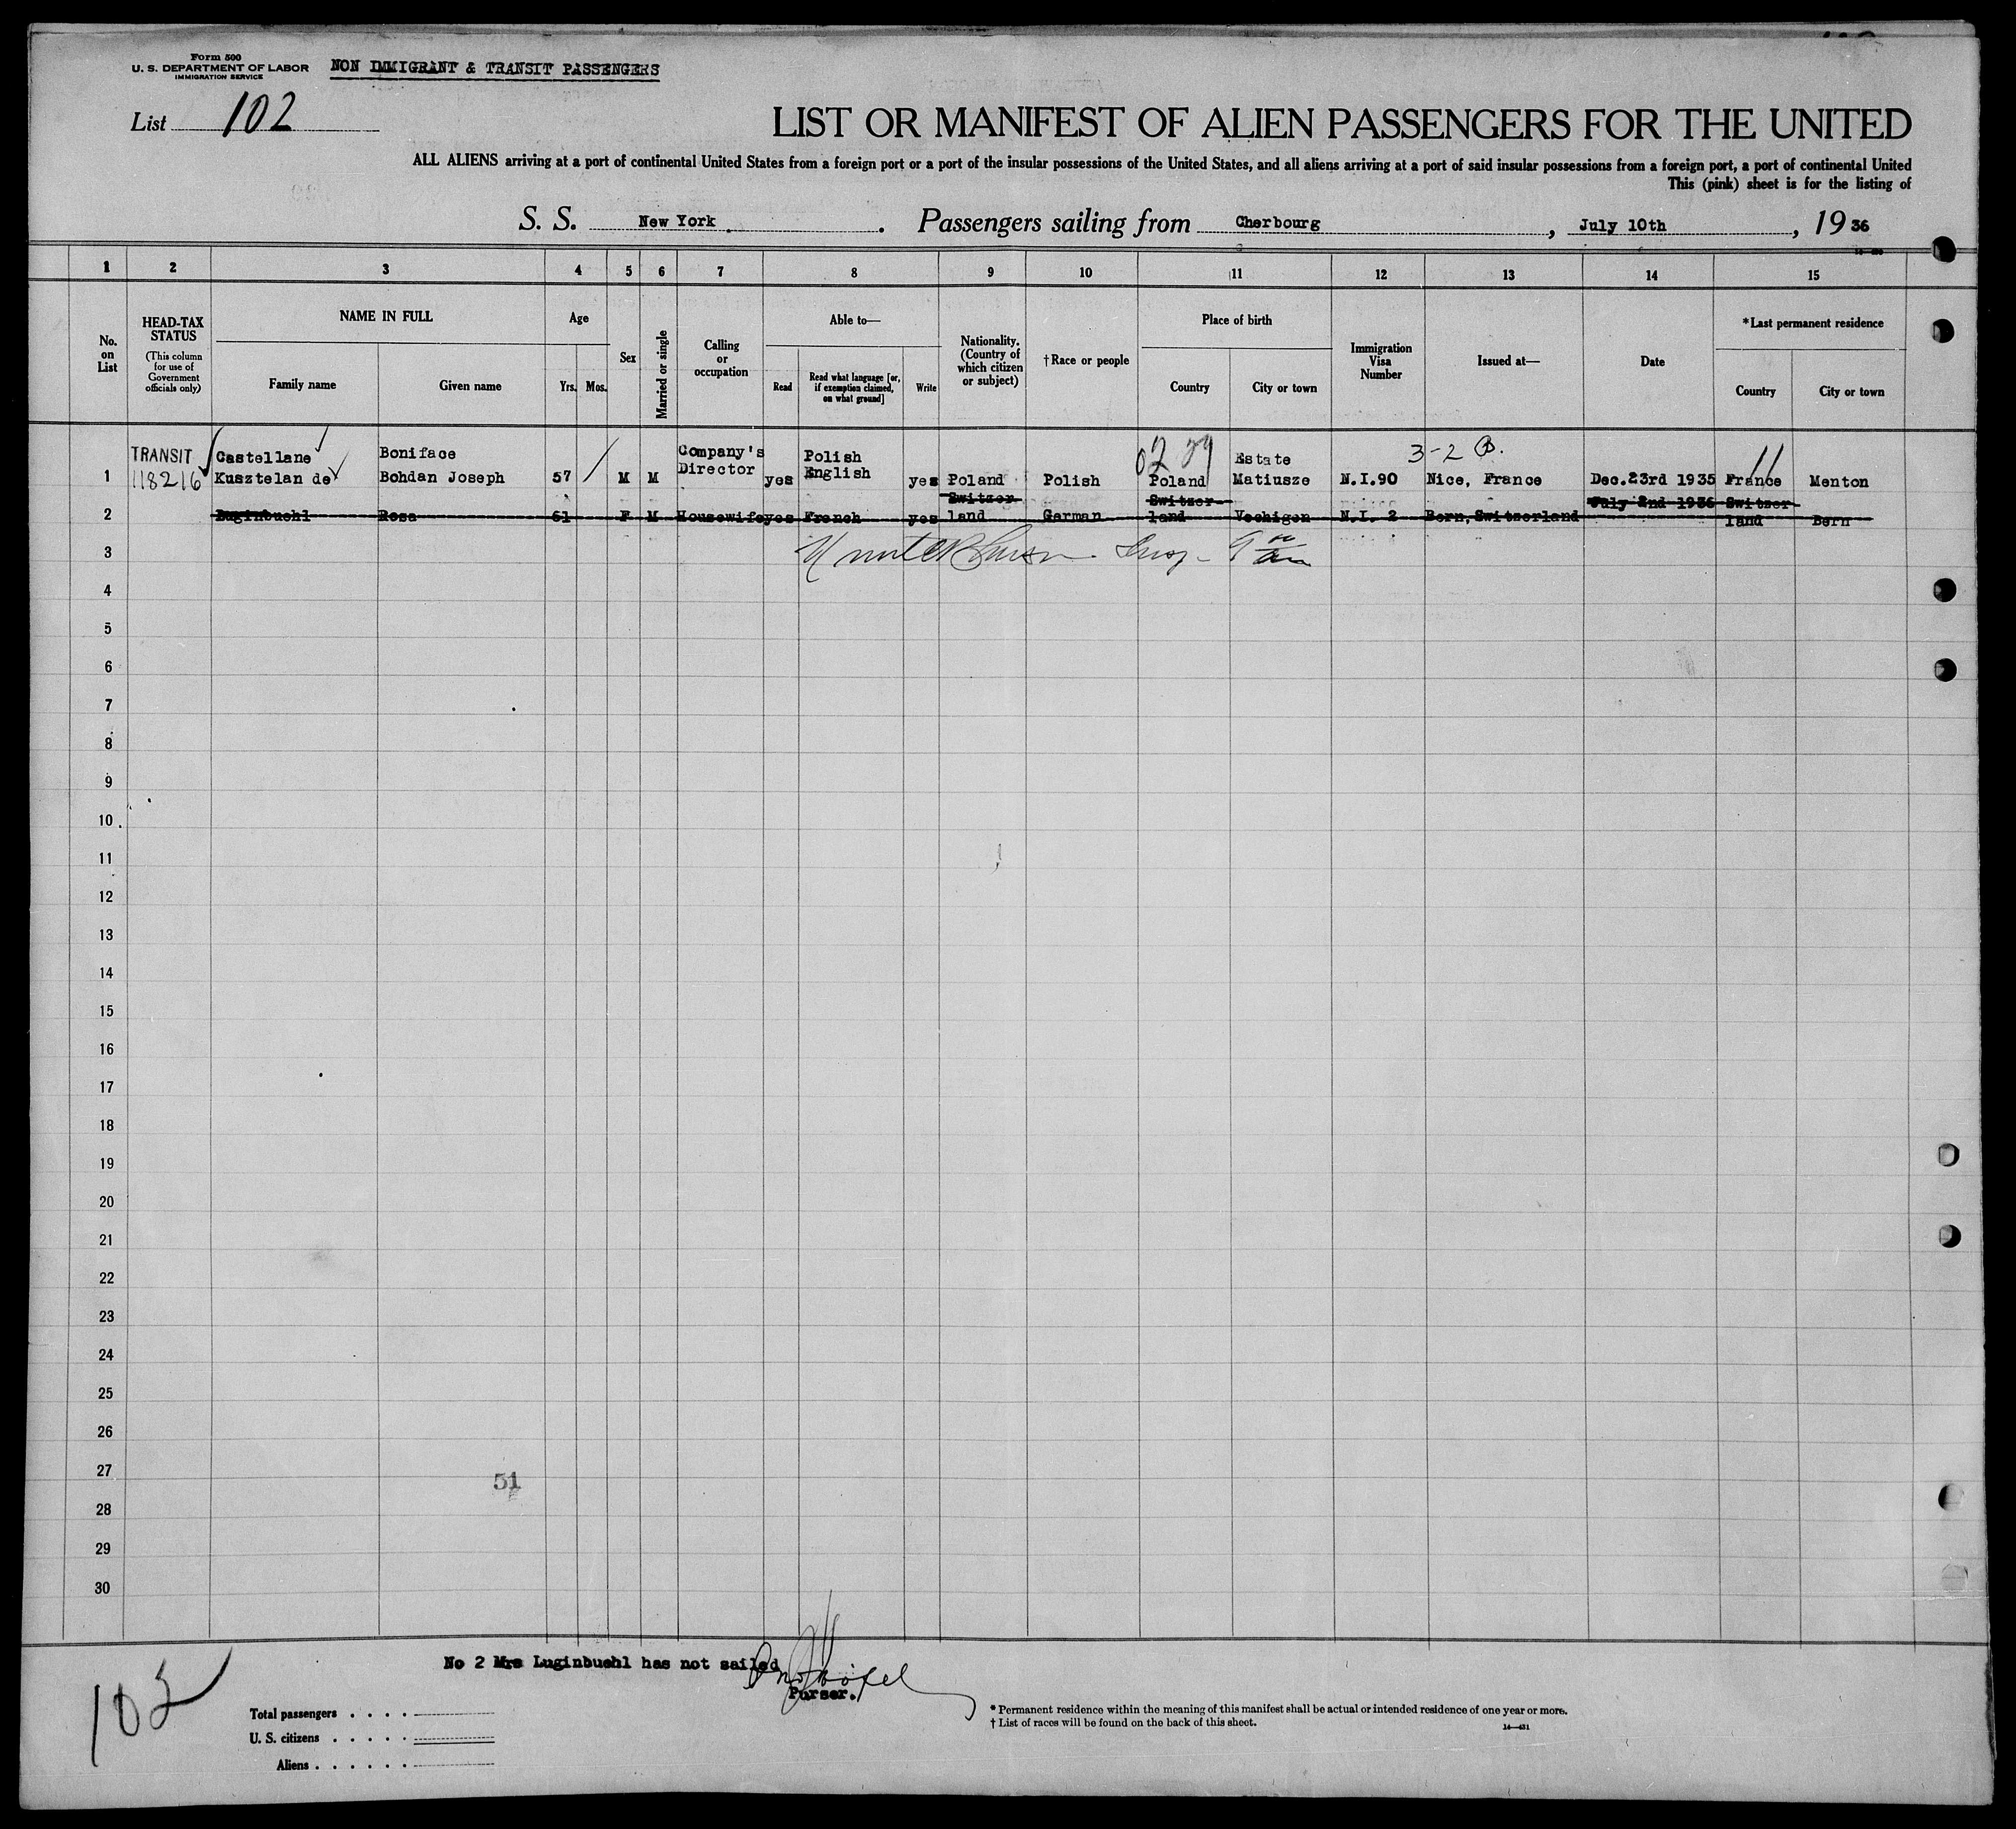 Form 500
U. S. DEPARTMENT OF LABOR
IMMIGRATION SERVICE
NON IMMIGRANT & TRANSIT PASSENGERS
List 102
LIST OR MANIFEST OF ALIEN PASSENGERS FOR THE UNITED
ALL ALIENS arriving at a port of continental United States from a foreign port or a port of the insular possessions of the United States, and all aliens arriving at a port of said insular possessions from a foreign port, a port of continental United
This (pink) sheet is for the listing of
S. S. New York. Passengers sailing from Cherbourg, July 10th, 1936
1 2 3 4 5 6 7 8 9 10 11 12 13 14 15
No. on List
HEAD-TAX STATUS
(This column for use of Government officials only)
NAME IN FULL
Family name
Given name
Age
Yrs. Mos.
Sex
Married or single
Calling or occupation
Able to—
Read
Read what language [or, if exemption claimed, on what ground]
Write
Nationality. (Country of which citizen or subject)
†Race or people
Place of birth
Country
City or town
Immigration Visa Number
Issued at—
Date
*Last permanent residence
Country
City or town
TRANSIT Castellane Boniface Company's Polish 02 29 Estate 3-2
1 118216 Kusztelan de Bohdan Joseph 57 M M Director yes English yes Poland Polish Poland Matiusze N.I.90 Nice, France Dec.23rd 1935 France Menton
Switzer- Switzer- July 2nd 1936 Switzer
2 Luginbuehl Rosa 61 F M Housewife yes French yes land German land Vechigen N.I. 2 Bern, Switzerland land Bern
3
4
5
6
7
8
9
10
11
12
13
14
15
16
17
18
19
20
21
22
23
24
25
26
27
51
28
29
30
No 2 Mrs Luginbuehl has not sailed
Purser.
103
Total passengers
U. S. citizens
Aliens
* Permanent residence within the meaning of this manifest shall be actual or intended residence of one year or more.
† List of races will be found on the back of this sheet.
14—431